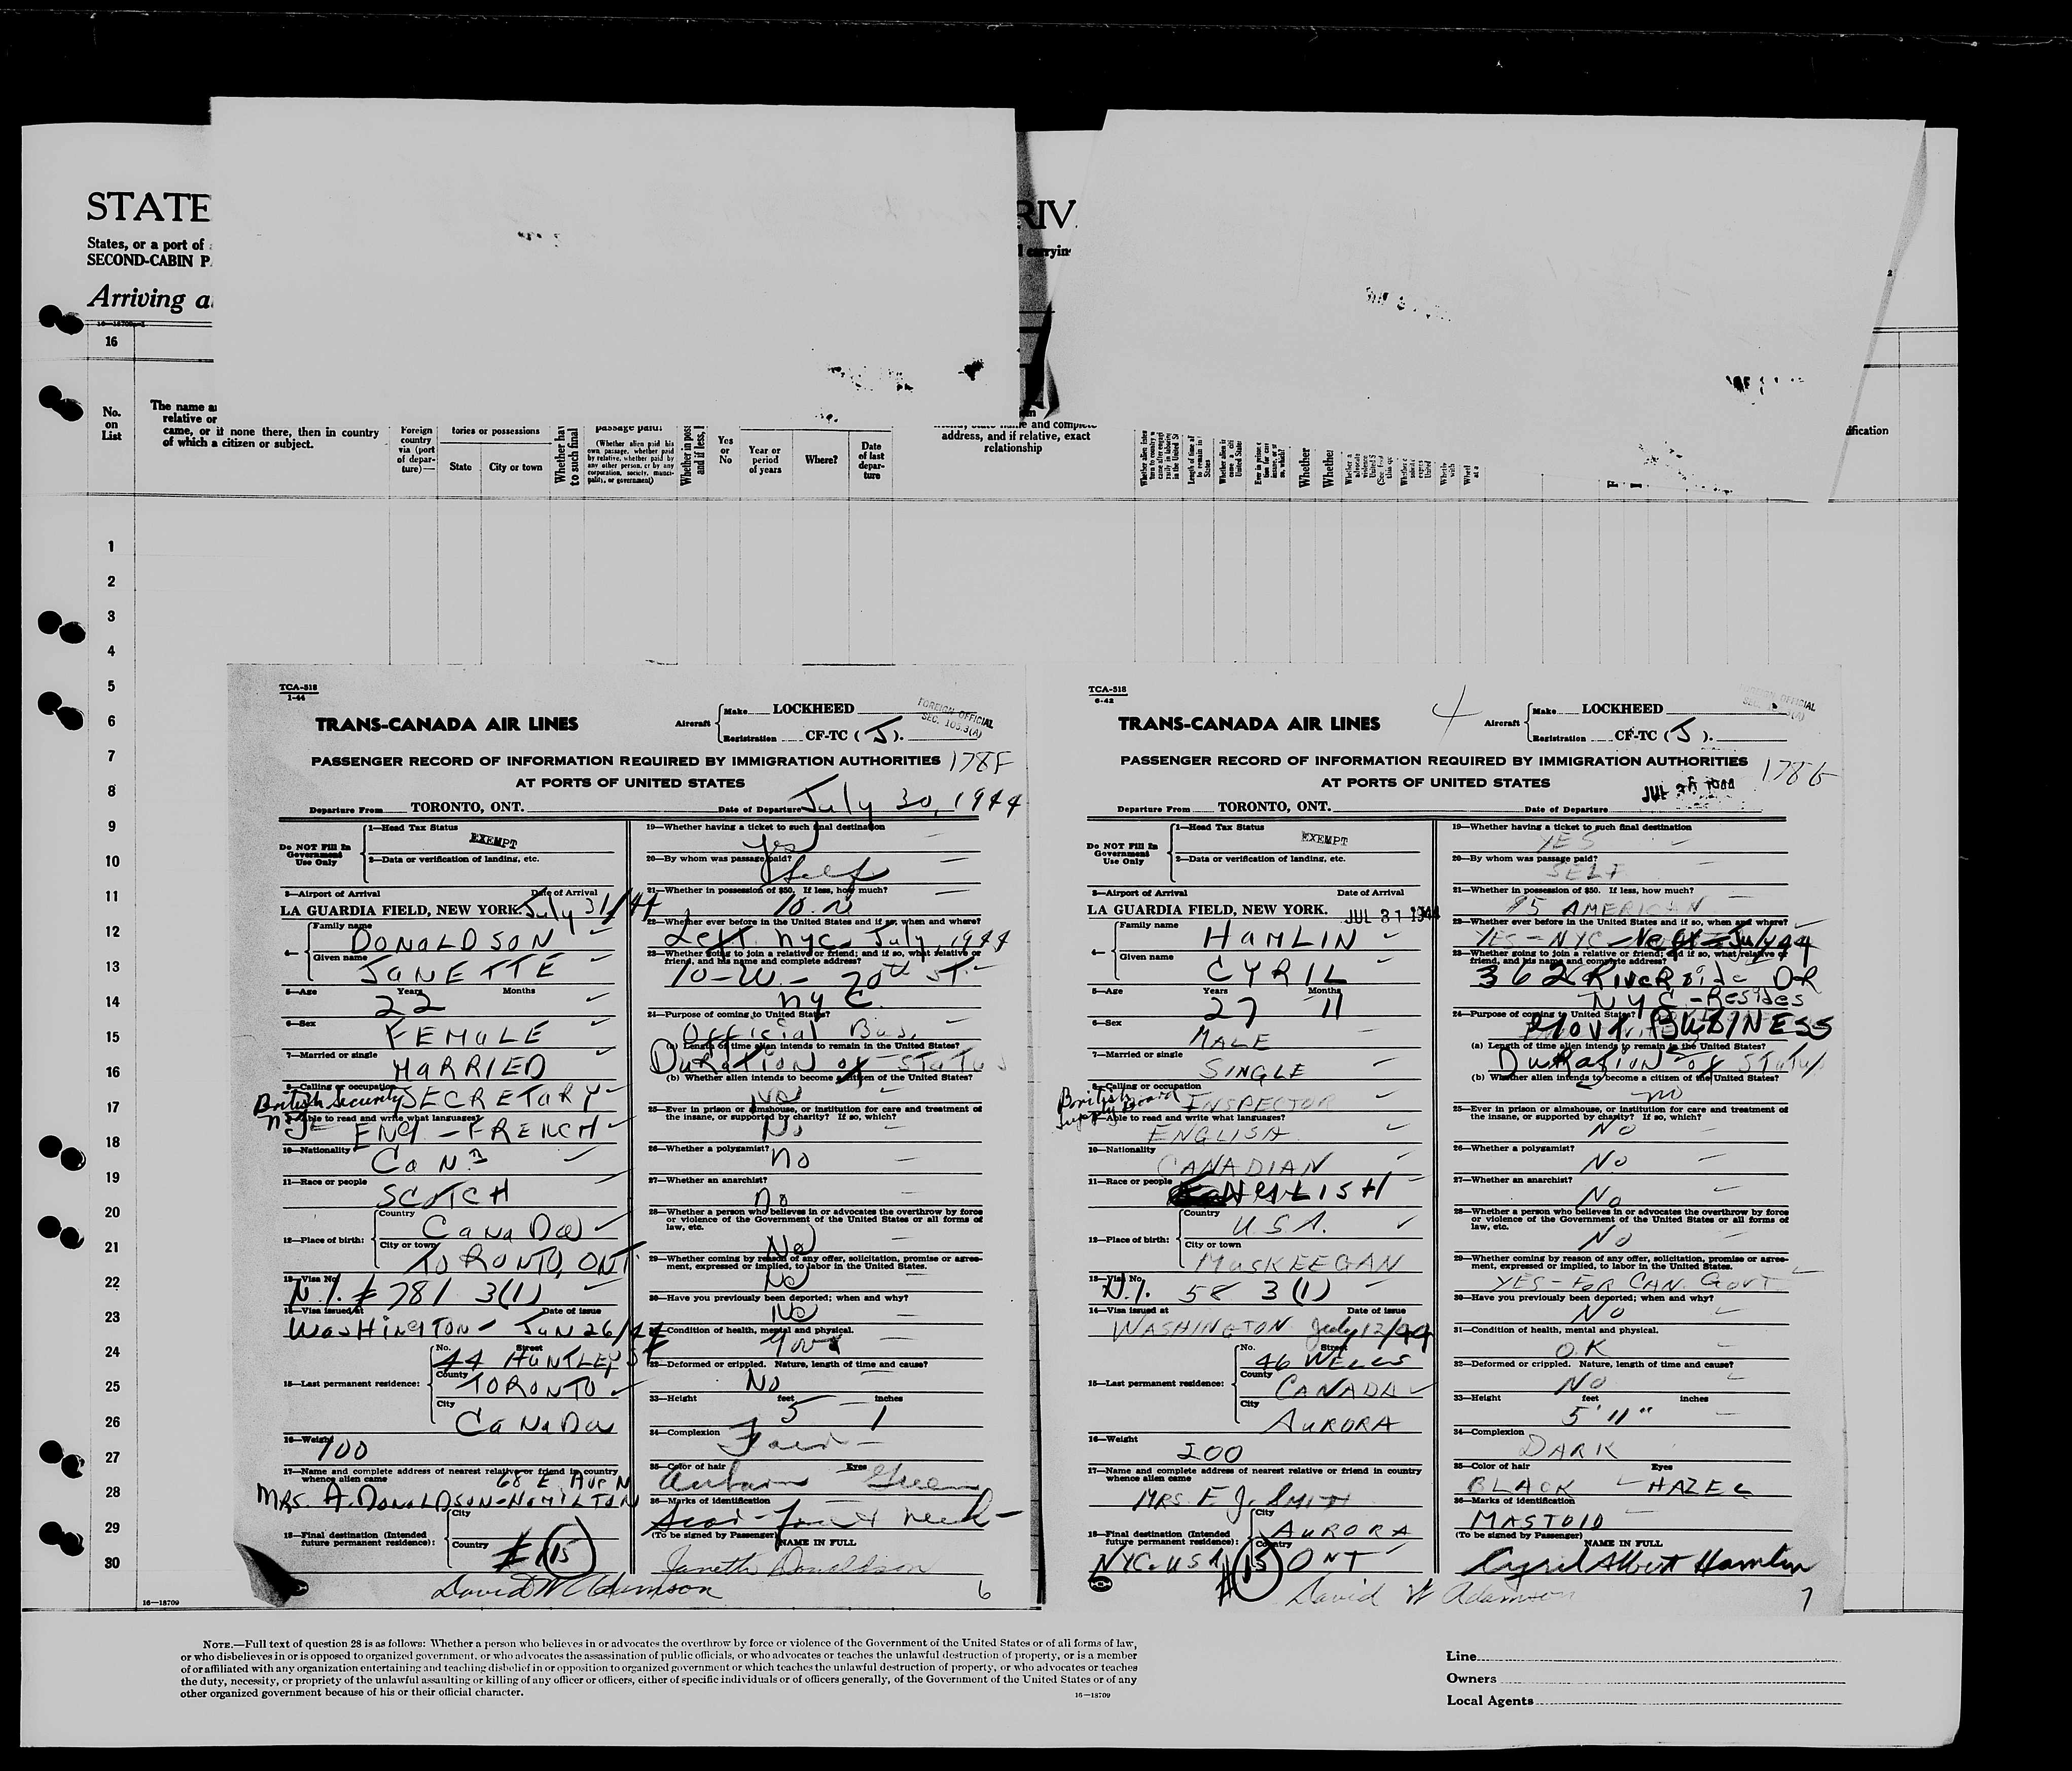 STATE
RIV
States, or a port of
SECOND-CABIN P
Arriving a
16
No. on List
The name a
relative or
came, or if none there, then in country
of which a citizen or subject.
Foreign country via (port of departure)—
tories or possessions
State
City or town
Whether hav
to such final
passage paid?
(Whether alien paid his own passage, whether paid by relative, whether paid by any other person, or by any corporation, society, municipality, or government)
Whether in poss
and if less,
Yes or No
Year or period of years
Where?
Date of last departure
address, and if relative, exact
relationship
1
2
3
4
5
6
7
8
9
10
11
12
13
14
15
16
17
18
19
20
21
22
23
24
25
26
27
28
29
30
16—18709
TCA-518
1-44
TRANS-CANADA AIR LINES
Aircraft
Make LOCKHEED
Registration CF-TC (J).
FOREIGN OFFICIAL
SEC. 105.3(A)
PASSENGER RECORD OF INFORMATION REQUIRED BY IMMIGRATION AUTHORITIES 178F
AT PORTS OF UNITED STATES
Departure From TORONTO, ONT. Date of Departure July 30, 1944
Do NOT Fill In Government Use Only
1—Head Tax Status
EXEMPT
2—Data or verification of landing, etc.
3—Airport of Arrival Date of Arrival
LA GUARDIA FIELD, NEW YORK. July 31/44
4— Family name
DONALDSON
Given name
JANETTE
5—Age Years Months
22
6—Sex
FEMALE
7—Married or single
MARRIED
8—Calling or occupation
British Security SECRETARY
9—Able to read and write what languages?
ENG - FRENCH
10—Nationality
CaN.
11—Race or people
SCOTCH
12—Place of birth:
Country
CaNaDa
City or town
TORONTO, ONT
13—Visa No.
N.I. # 781 3(1)
14—Visa issued at Date of issue
WASHINGTON - JUN 26/44
15—Last permanent residence:
No. Street
44 HUNTLEY ST
County
TORONTO
City
CaNaDa
16—Weight
100
17—Name and complete address of nearest relative or friend in country
whence alien came
68 E. Ave N
MRS. A. DONALDSON-HAMILTON
18—Final destination (Intended future permanent residence):
City
Country
# 15
David W Adamson
19—Whether having a ticket to such final destination
Yes
20—By whom was passage paid?
Self
21—Whether in possession of $50. If less, how much?
22—Whether ever before in the United States and if so, when and where?
Left nyc July, 1944
23—Whether going to join a relative or friend; and if so, what relative or
friend, and his name and complete address?
10-W- 70th ST.
NYC.
24—Purpose of coming to United States?
Official Bus.
(a) Length of time alien intends to remain in the United States?
DURATION of STATUS
(b) Whether alien intends to become citizen of the United States?
No
25—Ever in prison or almshouse, or institution for care and treatment of
the insane, or supported by charity? If so, which?
No
26—Whether a polygamist?
no
27—Whether an anarchist?
no
28—Whether a person who believes in or advocates the overthrow by force
or violence of the Government of the United States or all forms of
law, etc.
No
29—Whether coming by reason of any offer, solicitation, promise or agree-
ment, expressed or implied, to labor in the United States.
No
30—Have you previously been deported; when and why?
No
31—Condition of health, mental and physical.
32—Deformed or crippled. Nature, length of time and cause?
No
33—Height feet inches
5 - 1
34—Complexion
Fair
35—Color of hair Eyes
Auburn Green
36—Marks of identification
Scar-front neck
(To be signed by Passenger) NAME IN FULL
Janette Donaldson
6
TCA-518
6-42
TRANS-CANADA AIR LINES
Aircraft
Make LOCKHEED
Registration CF-TC (J).
PASSENGER RECORD OF INFORMATION REQUIRED BY IMMIGRATION AUTHORITIES 178G
AT PORTS OF UNITED STATES
Departure From TORONTO, ONT. Date of Departure
Do NOT Fill In Government Use Only
1—Head Tax Status
EXEMPT
2—Data or verification of landing, etc.
3—Airport of Arrival Date of Arrival
LA GUARDIA FIELD, NEW YORK. JUL 31 1944
4— Family name
HAMLIN
Given name
CYRIL
5—Age Years Months
27 11
6—Sex
MALE
7—Married or single
SINGLE
8—Calling or occupation
British Supply Board INSPECTOR
9—Able to read and write what languages?
ENGLISH
10—Nationality
CANADIAN
11—Race or people
ENGLISH
12—Place of birth:
Country
U.S.A.
City or town
MUSKEEGAN
13—Visa No.
N.I. 58 3(1)
14—Visa issued at Date of issue
WASHINGTON July 12/44
15—Last permanent residence:
No. Street
46 WELLS
County
CANADA
City
AURORA
16—Weight
200
17—Name and complete address of nearest relative or friend in country
whence alien came
MRS. E. J. SMITH
18—Final destination (Intended future permanent residence):
City
AURORA
Country
NYC. USA #15 ONT
David W Adamson
19—Whether having a ticket to such final destination
YES
20—By whom was passage paid?
SELF
21—Whether in possession of $50. If less, how much?
$5 AMERICAN
22—Whether ever before in the United States and if so, when and where?
YES - NYC - July 44
23—Whether going to join a relative or friend; and if so, what relative or
friend, and his name and complete address?
362 RIVERSide DR
NYC - Resides
24—Purpose of coming to United States?
Govt BUSINESS
(a) Length of time alien intends to remain in the United States?
DURATION of Status
(b) Whether alien intends to become a citizen of the United States?
no
25—Ever in prison or almshouse, or institution for care and treatment of
the insane, or supported by charity? If so, which?
No
26—Whether a polygamist?
No
27—Whether an anarchist?
No
28—Whether a person who believes in or advocates the overthrow by force
or violence of the Government of the United States or all forms of
law, etc.
No
29—Whether coming by reason of any offer, solicitation, promise or agree-
ment, expressed or implied, to labor in the United States.
YES - FOR CAN. GOVT.
30—Have you previously been deported; when and why?
No
31—Condition of health, mental and physical.
O.K
32—Deformed or crippled. Nature, length of time and cause?
No
33—Height feet inches
5' 11"
34—Complexion
DARK
35—Color of hair Eyes
BLACK HAZEL
36—Marks of identification
MASTOID
(To be signed by Passenger) NAME IN FULL
Cyril Albert Hamlin
7
16—18709
NOTE.—Full text of question 28 is as follows: Whether a person who believes in or advocates the overthrow by force or violence of the Government of the United States or of all forms of law,
or who disbelieves in or is opposed to organized government, or who advocates the assassination of public officials, or who advocates or teaches the unlawful destruction of property, or is a member
of or affiliated with any organization entertaining and teaching disbelief in or opposition to organized government or which teaches the unlawful destruction of property, or who advocates or teaches
the duty, necessity, or propriety of the unlawful assaulting or killing of any officer or officers, either of specific individuals or of officers generally, of the Government of the United States or of any
other organized government because of his or their official character.
16—18709
Line
Owners
Local Agents